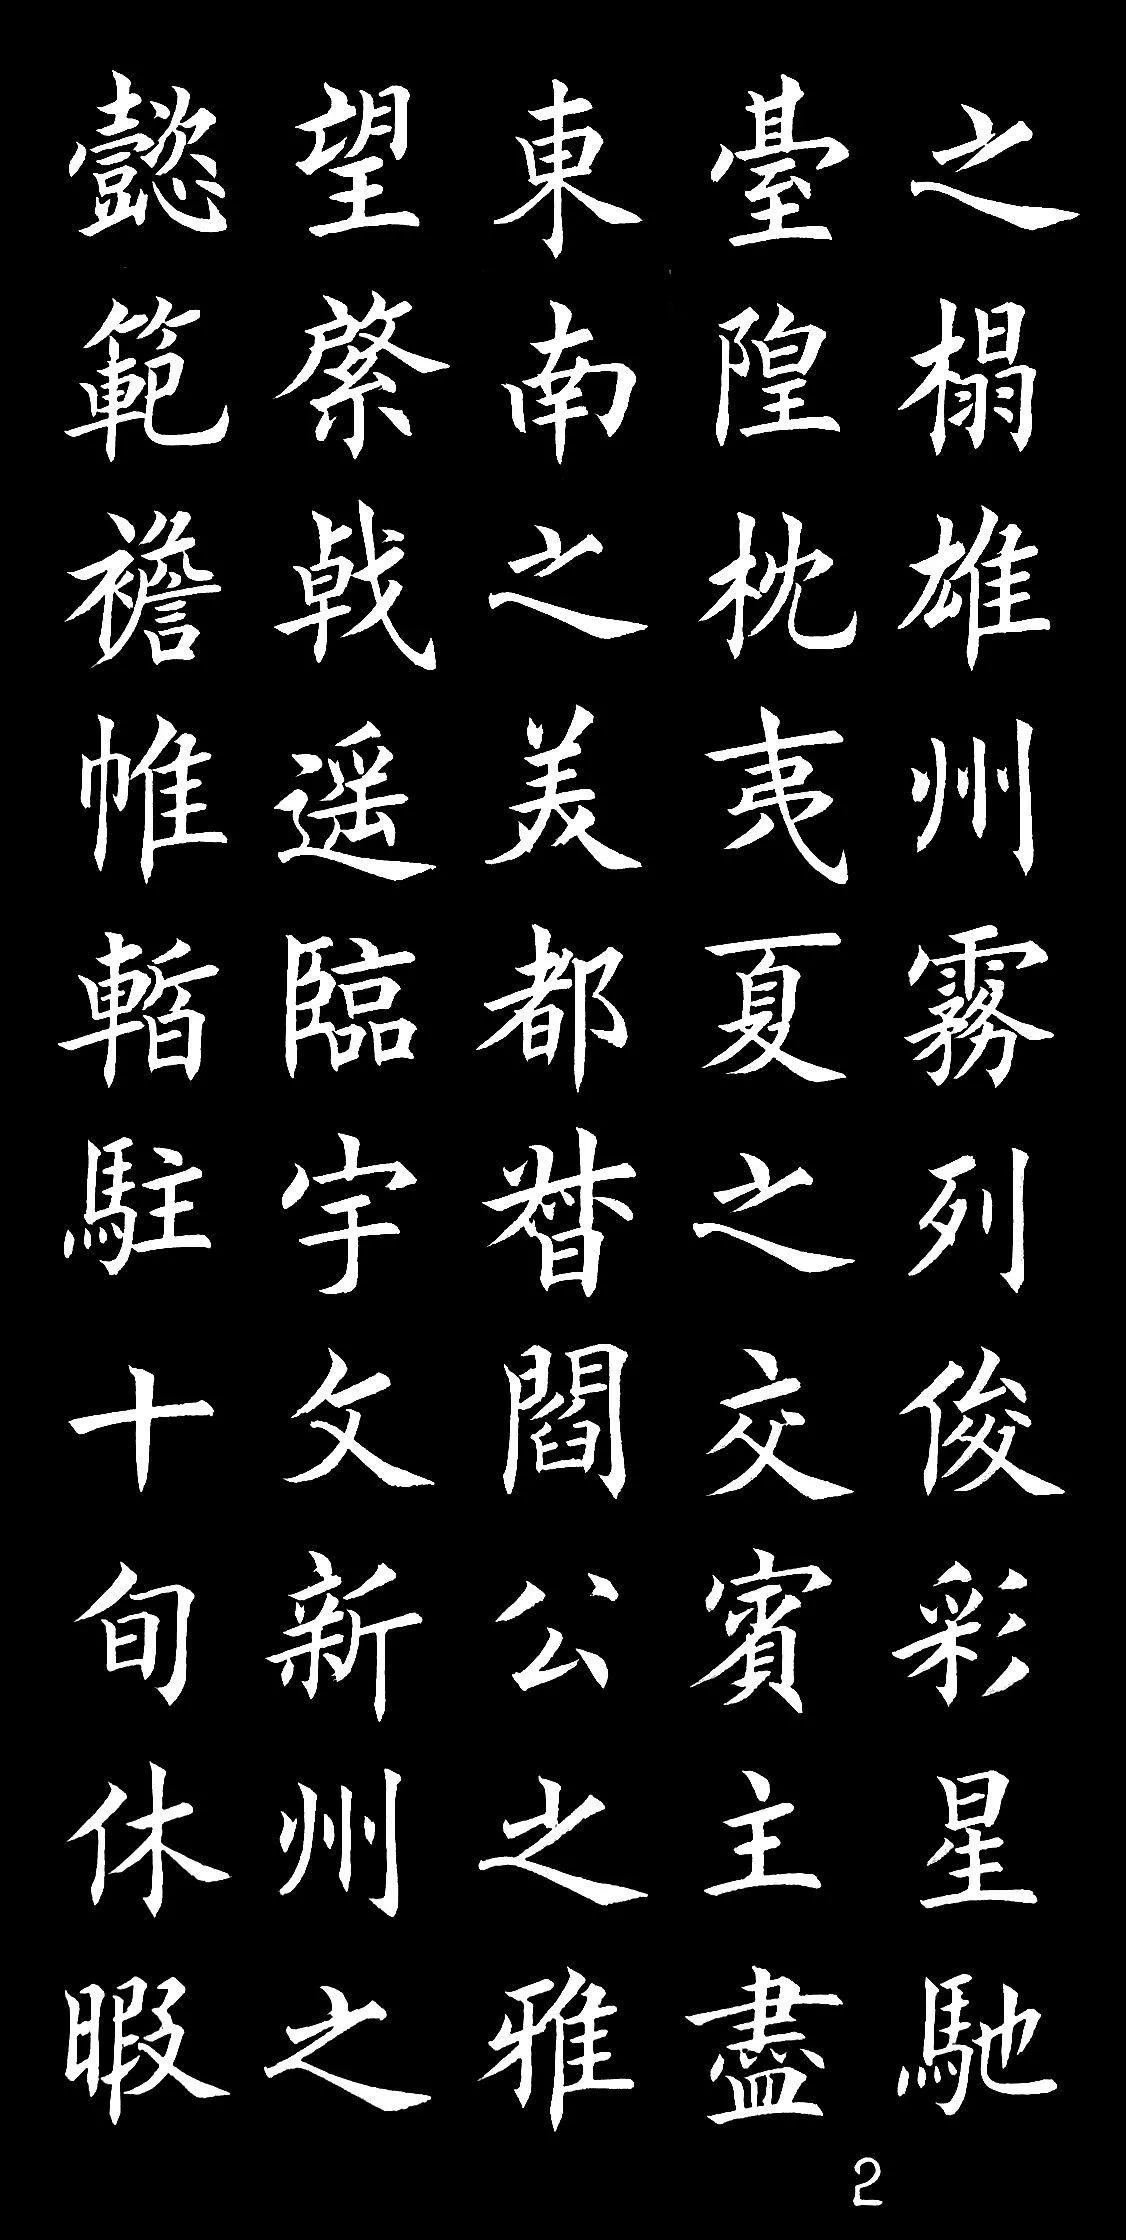 之榻雄州霧列俊彩星馳
臺隍枕夷夏之交賓主盡
東南之美都督閻公之雅
望棨戟遥臨宇文新州之
懿範襜帷暫駐十旬休暇
2